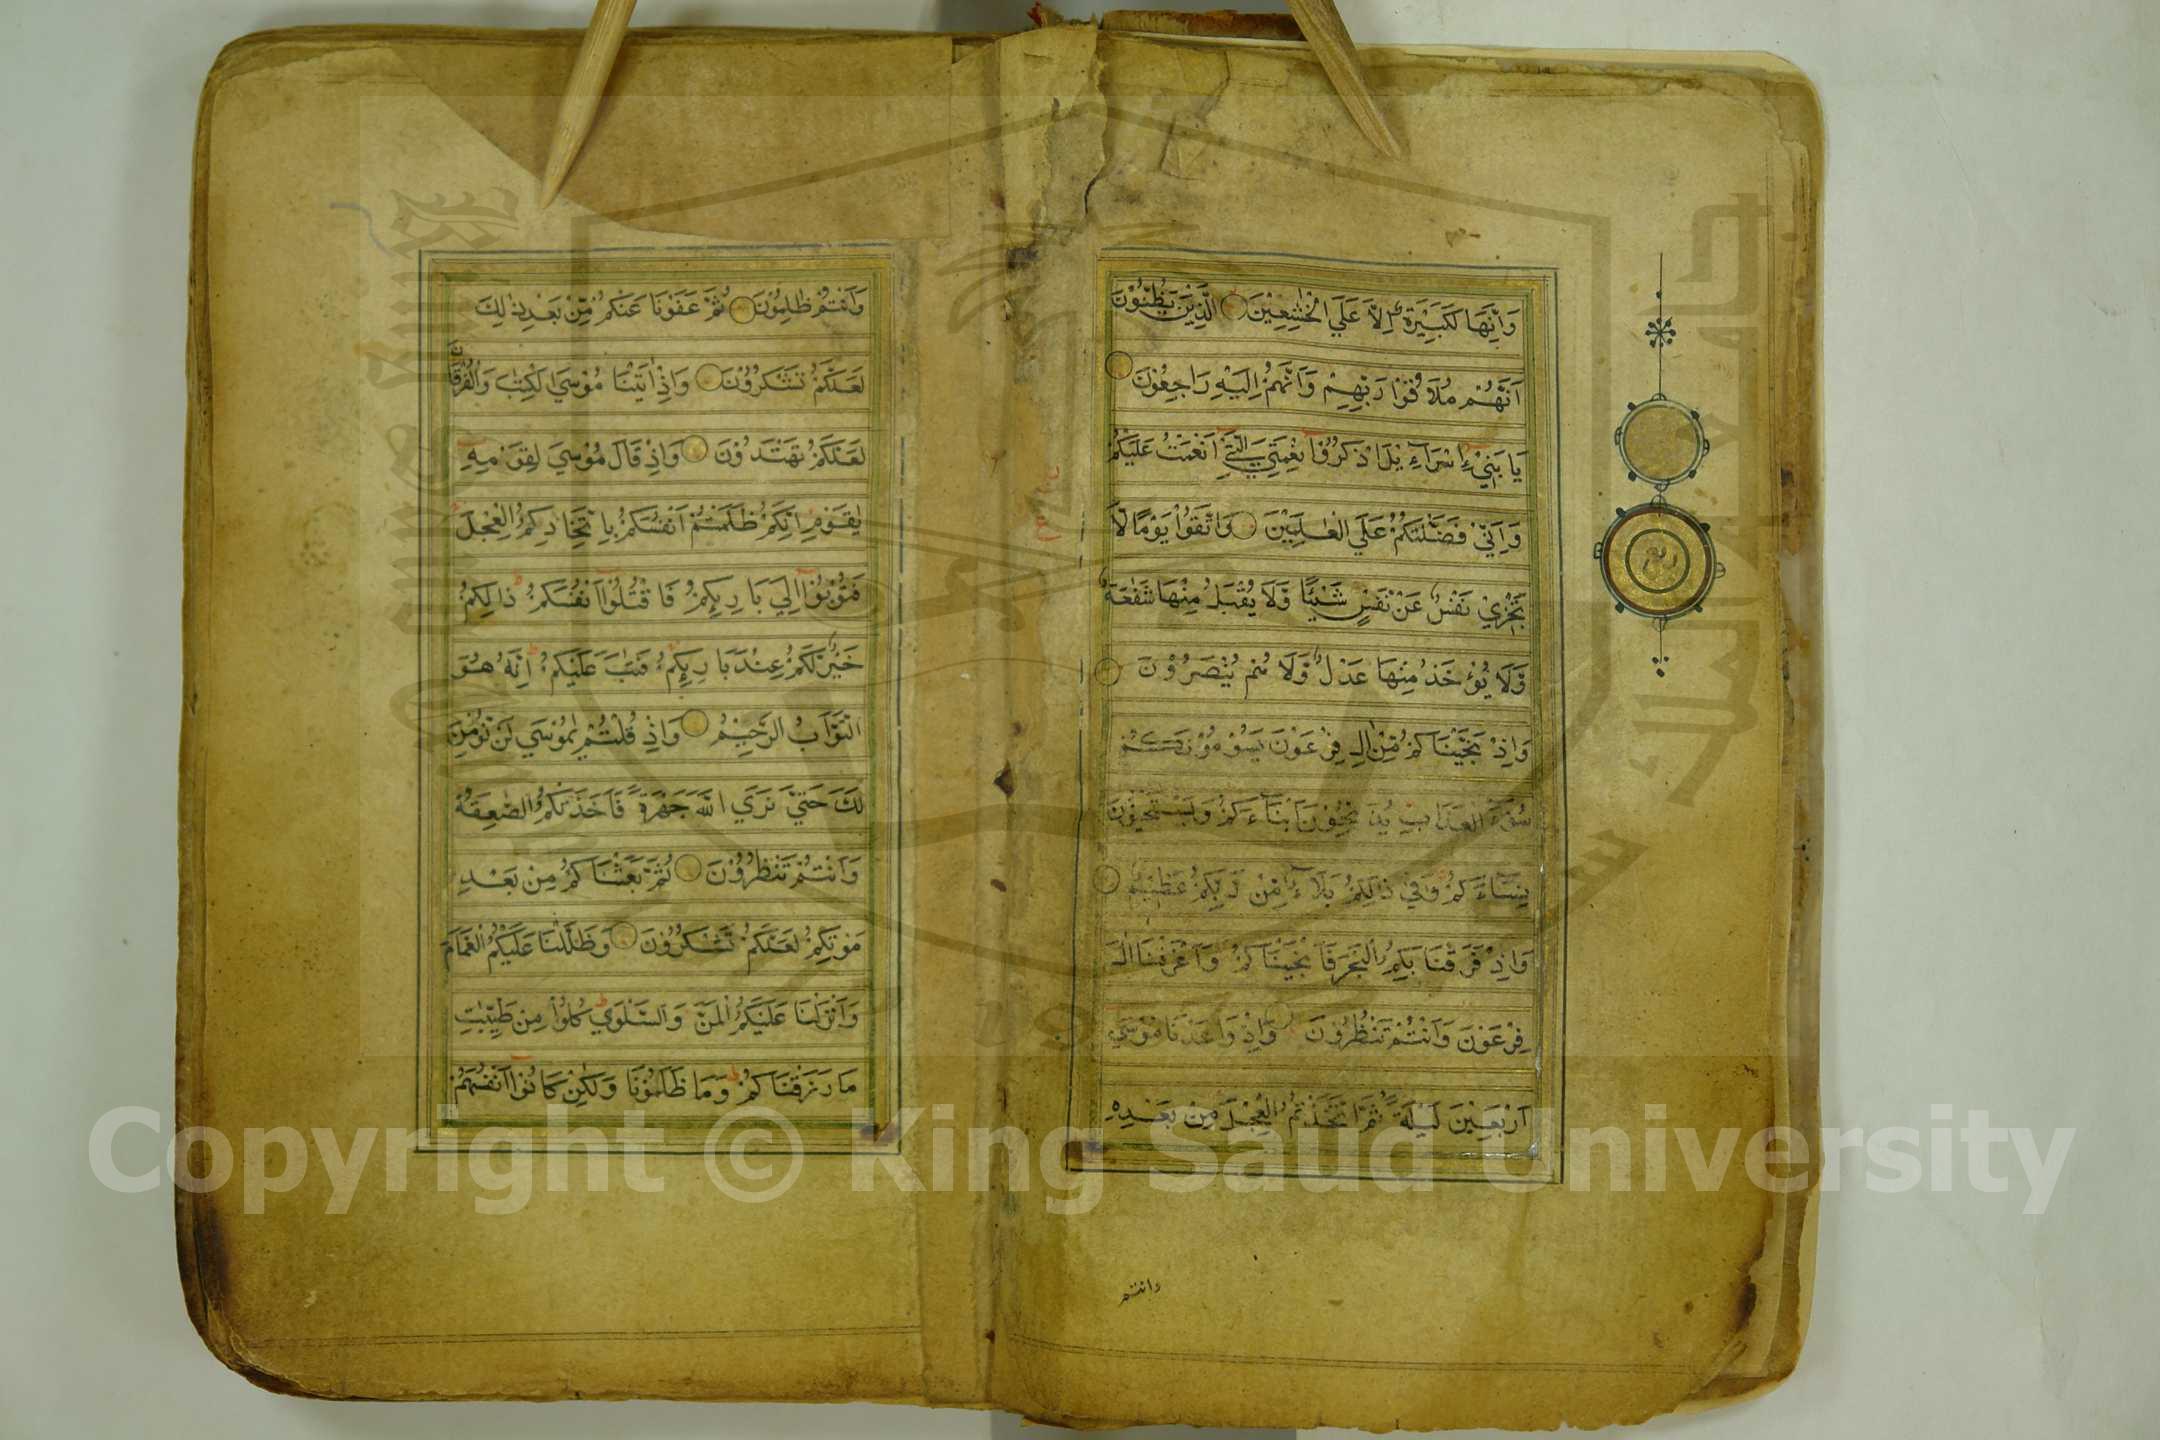 وَاِنَّهَا لَكَبِيْرَةٌ اِلَّا عَلَي الْخٰشِعِيْنَ الَّذِيْنَ يَظُنُّوْنَ
اَنَّهُمْ مُلَاقُوْا رَبِّهِمْ وَاَنَّهُمْ اِلَيْهِ رَاجِعُوْنَ
يَا بَنِيْ اِسْرَآءِيْلَ اذْكُرُوْا نِعْمَتِيَ الَّتِيْ اَنْعَمْتُ عَلَيْكُمْ
وَاَنِّيْ فَضَّلْتُكُمْ عَلَي الْعٰلَمِيْنَ وَاتَّقُوْا يَوْمًا لَا
تَجْزِيْ نَفْسٌ عَنْ نَفْسٍ شَيْئًا وَّلَا يُقْبَلُ مِنْهَا شَفٰعَةٌ
وَّلَا يُؤْخَذُ مِنْهَا عَدْلٌ وَّلَا هُمْ يُنْصَرُوْنَ
وَاِذْ نَجَّيْنَاكُمْ مِّنْ اٰلِ فِرْعَوْنَ يَسُوْمُوْنَكُمْ
سُوْٓءَ الْعَذَابِ يُذَبِّحُوْنَ اَبْنَآءَكُمْ وَيَسْتَحْيُوْنَ
نِسَآءَكُمْ وَفِيْ ذٰلِكُمْ بَلَآءٌ مِّنْ رَّبِّكُمْ عَظِيْمٌ
وَاِذْ فَرَقْنَا بِكُمُ الْبَحْرَ فَاَنْجَيْنَاكُمْ وَاَغْرَقْنَا اٰلَ
فِرْعَوْنَ وَاَنْتُمْ تَنْظُرُوْنَ وَاِذْ وَاعَدْنَا مُوْسَيٓ
اَرْبَعِيْنَ لَيْلَةً ثُمَّ اتَّخَذْتُمُ الْعِجْلَ مِنْ بَعْدِهٖ
وانتم
ربع
وَاَنْتُمْ ظٰلِمُوْنَ ثُمَّ عَفَوْنَا عَنْكُمْ مِّنْ بَعْدِ ذٰلِكَ
لَعَلَّكُمْ تَشْكُرُوْنَ وَاِذْ اٰتَيْنَا مُوْسَي الْكِتٰبَ وَالْفُرْقَانَ
لَعَلَّكُمْ تَهْتَدُوْنَ وَاِذْ قَالَ مُوْسَي لِقَوْمِهٖ
يٰقَوْمِ اِنَّكُمْ ظَلَمْتُمْ اَنْفُسَكُمْ بِاتِّخَاذِكُمُ الْعِجْلَ
فَتُوْبُوْٓا اِلَي بَارِئِكُمْ فَاقْتُلُوْٓا اَنْفُسَكُمْ ذٰلِكُمْ
خَيْرٌ لَّكُمْ عِنْدَ بَارِئِكُمْ فَتَابَ عَلَيْكُمْ اِنَّهٗ هُوَ
التَّوَّابُ الرَّحِيْمُ وَاِذْ قُلْتُمْ يٰمُوْسَي لَنْ نُؤْمِنَ
لَكَ حَتَّي نَرَي اللّٰهَ جَهْرَةً فَاَخَذَتْكُمُ الصّٰعِقَةُ
وَاَنْتُمْ تَنْظُرُوْنَ ثُمَّ بَعَثْنَاكُمْ مِنْ بَعْدِ
مَوْتِكُمْ لَعَلَّكُمْ تَشْكُرُوْنَ وَظَلَّلْنَا عَلَيْكُمُ الْغَمَامَ
وَاَنْزَلْنَا عَلَيْكُمُ الْمَنَّ وَالسَّلْوَي كُلُوْا مِنْ طَيِّبٰتِ
مَا رَزَقْنَاكُمْ وَمَا ظَلَمُوْنَا وَلٰكِنْ كَانُوْٓا اَنْفُسَهُمْ
Copyright © King Saud University